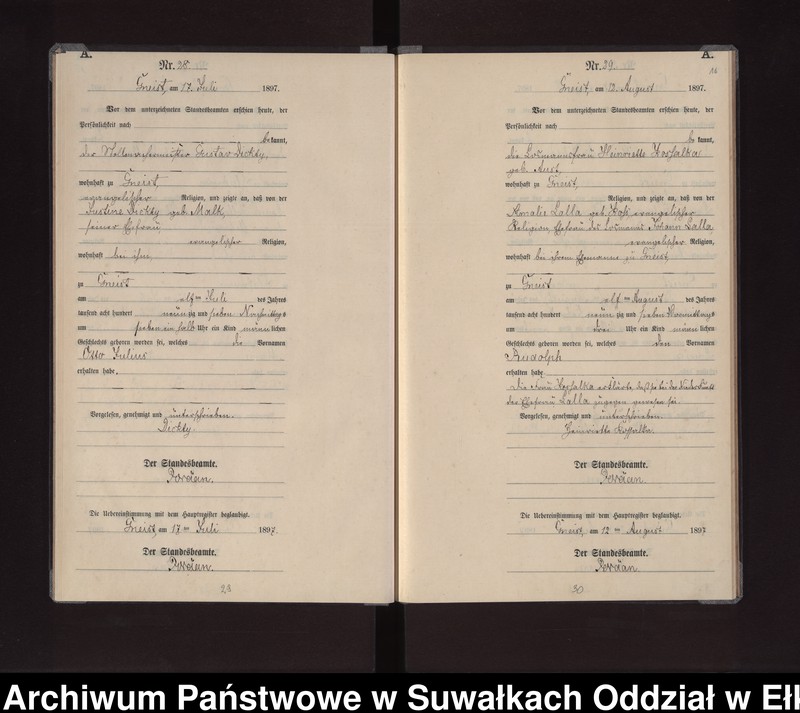 A.
Nr. 28.
Gneist, am 17. Juli 1897.
Vor dem unterzeichneten Standesbeamten erschien heute, der
Persönlichkeit nach
bekannt,
der Gustav
wohnhaft zu Gneist,
evangelischer Religion, und zeigte an, daß von der
geb. Malk,
seiner Ehefrau,
evangelischer Religion,
wohnhaft bei ihm,
zu Gneist
am elften Juli des Jahres
tausend acht hundert neunzig und sieben Nachmittags
um sieben ein halb Uhr ein Kind männlichen
Geschlechts geboren worden sei, welches die Vornamen
Otto Julius
erhalten habe.
Vorgelesen, genehmigt und unterschrieben.
Der Standesbeamte.
Die Uebereinstimmung mit dem Hauptregister beglaubigt.
Gneist, am 17ten Juli 1897.
Der Standesbeamte.
23
A.
Nr. 29.
Gneist, am 12. August 1897.
Vor dem unterzeichneten Standesbeamten erschien heute, der
Persönlichkeit nach
bekannt,
die Losmannsfrau Heinriette Kossalka
geb.
wohnhaft zu Gneist,
Religion, und zeigte an, daß von der
Lalla geb. evangelischer
Religion, Ehefrau des Losmanns Johann Lalla,
evangelischer Religion,
wohnhaft bei ihrem Ehemanne zu Gneist
zu Gneist
am elften August des Jahres
tausend acht hundert neunzig und sieben Vormittags
um drei Uhr ein Kind männlichen
Geschlechts geboren worden sei, welches den Vornamen
Rudolph
erhalten habe
Die Frau Kossalka erklärte, daß sie bei der Niederkunft
der Ehefrau Lalla zugegen gewesen sei.
Vorgelesen, genehmigt und unterschrieben.
Heinriette Kossalka.
Der Standesbeamte.
Die Uebereinstimmung mit dem Hauptregister beglaubigt.
Gneist, am 12ten August 1897
Der Standesbeamte.
30
Archiwum Państwowe w Suwałkach Oddział w Ełk